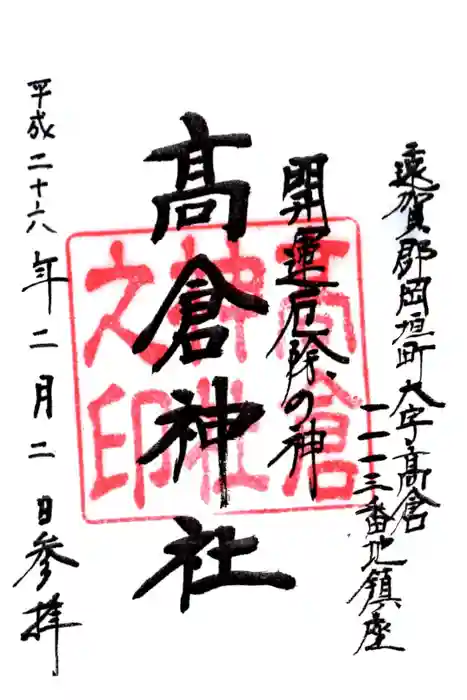 遠賀郡岡垣町大字高倉
一一一三番地鎮座
開運厄除の神
髙倉神社
平成二十六年二月二日参拝
高倉
神社
之印